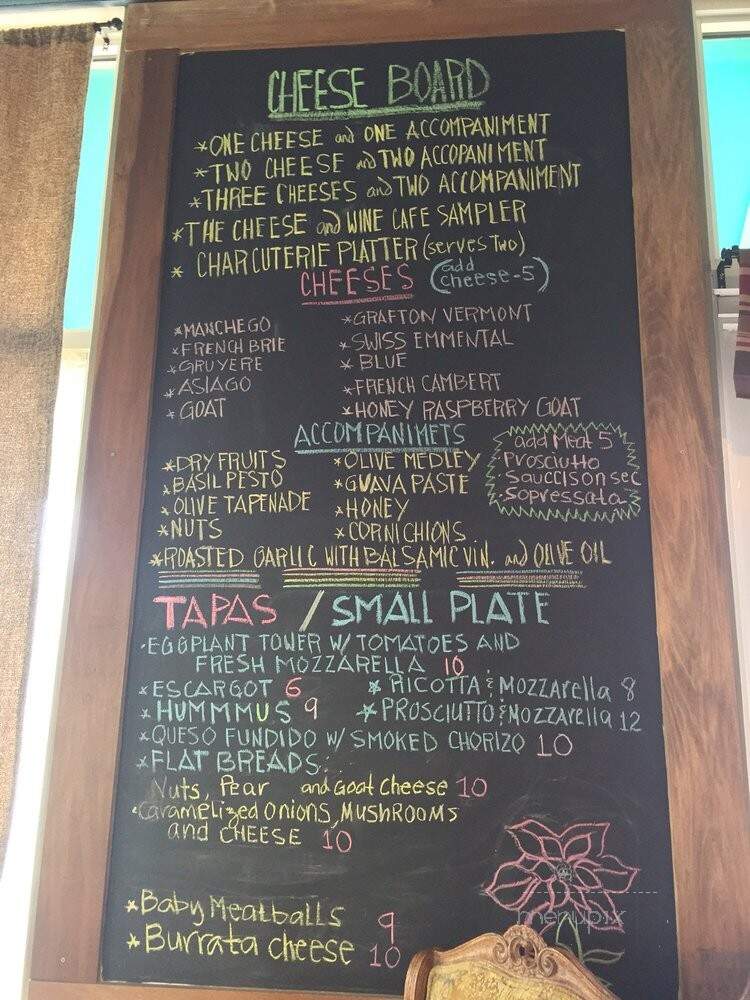 CHEESE BOARD
*ONE CHEESE and ONE ACCOMPANIMENT
*TWO CHEESE and TWO ACCOPANIMENT
*THREE CHEESES and TWO ACCOMPANIMENT
*THE CHEESE and WINE CAFE SAMPLER
* CHARCUTERIE PLATTER (serves Two)
CHEESES (add cheese-5)
*MANCHEGO
*FRENCH BRIE
*GRUYERE
*ASIAGO
*GOAT
*GRAFTON VERMONT
*SWISS EMMENTAL
*BLUE
*FRENCH CAMBERT
*HONEY RASPBERRY GOAT
ACCOMPANIMETS
*DRY FRUITS
*BASIL PESTO
*OLIVE TAPENADE
*NUTS
*OLIVE MEDLEY
*GUAVA PASTE
*HONEY
*CORNICHIONS
add Meat 5
Prosciutto
Sauccison sec
Sopressata
*ROASTED GARLIC WITH BALSAMIC VIN. and OLIVE OIL
TAPAS / SMALL PLATE
·EGGPLANT TOWER W/ TOMATOES AND
FRESH MOZZARELLA 10
*ESCARGOT 6
*RICOTTA & MOZZArella 8
*HUMMMUS 9
*PROSCIUTTO & MOZZArella 12
*QUESO FUNDIDO W/ SMOKED CHORIZO 10
*FLAT BREADS:
Nuts, Pear and Goat Cheese 10
·Caramelized Onions, MUSHROOMS
and CHEESE 10
*Baby Meatballs 9
*Burrata cheese 10
menupix